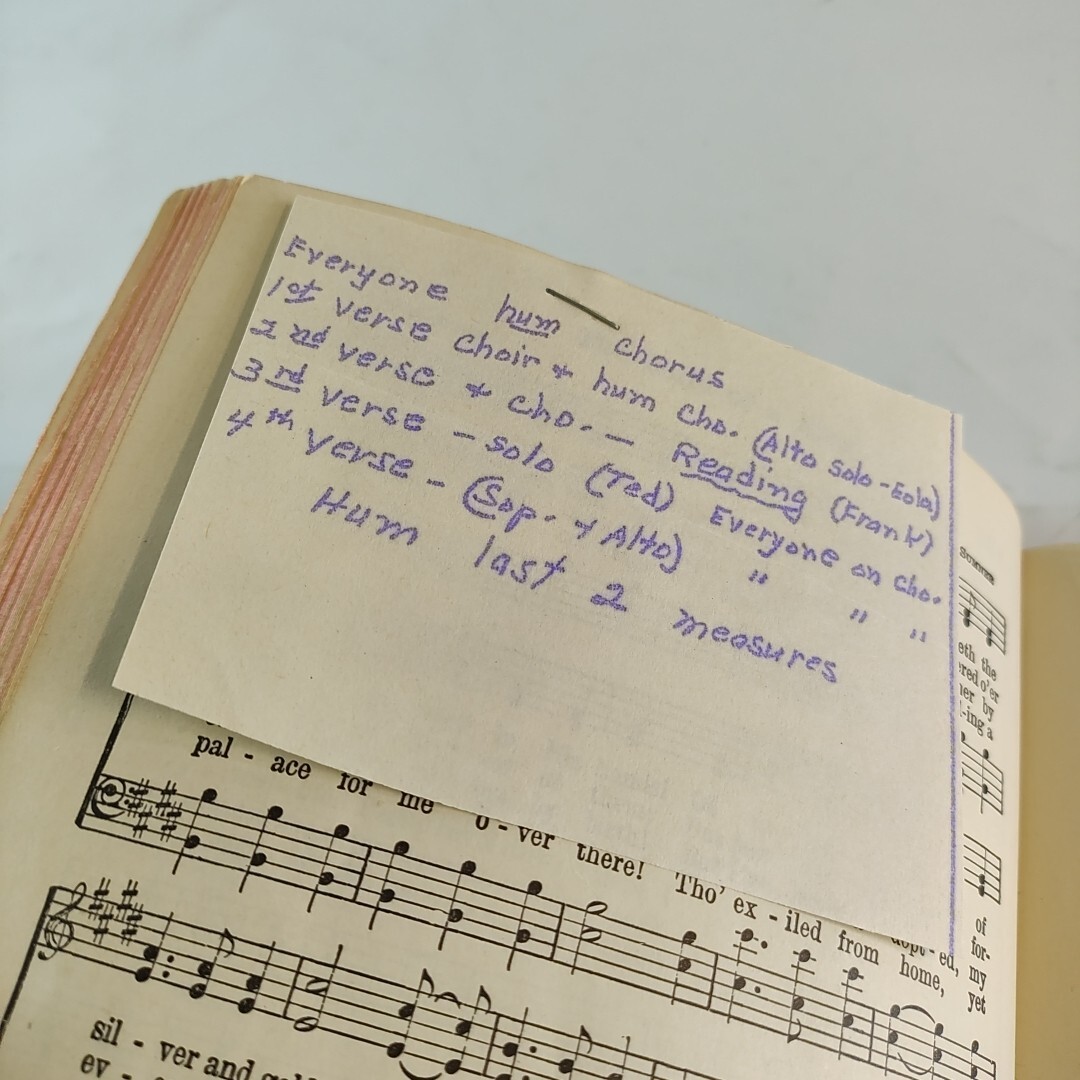 Everyone hum chorus
1st verse choir + hum cho. (Alto solo-Eola)
2nd verse + cho. — Reading (Frank)
3rd verse - solo (Ted) Everyone on cho.
4th verse - (Sop. + Alto) " " "
Hum last 2 measures
eth the
ered o'er
her by
-ing a
pal - ace for me o - ver there! Tho' ex - iled from home, yet
of
for-
opt - ed, my
sil - ver and
ev -